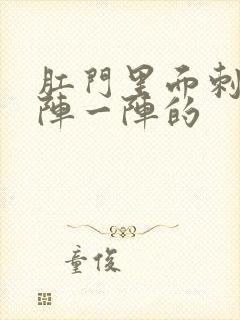 肛門里而刺
陣一陣的
童俊